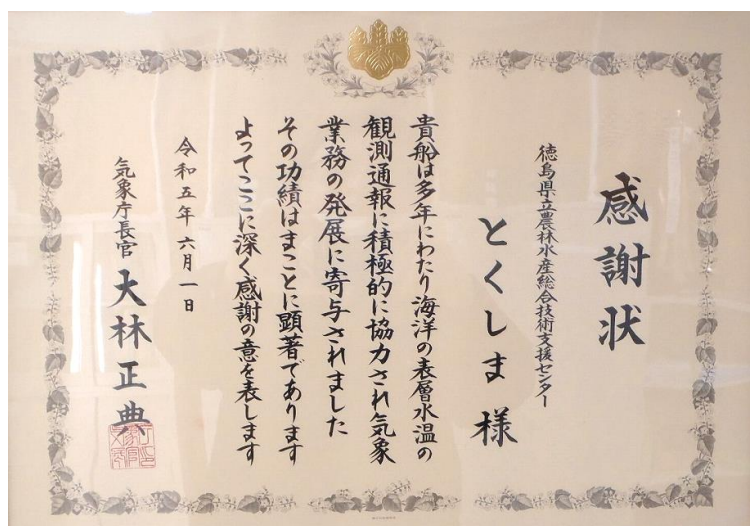 感謝状
徳島県立農林水産総合技術支援センター
とくしま 様
貴船は多年にわたり海洋の表層水温の
観測通報に積極的に協力され気象
業務の発展に寄与されました
その功績はまことに顕著であります
よってここに深く感謝の意を表します
令和五年六月一日
気象庁長官 大林正典